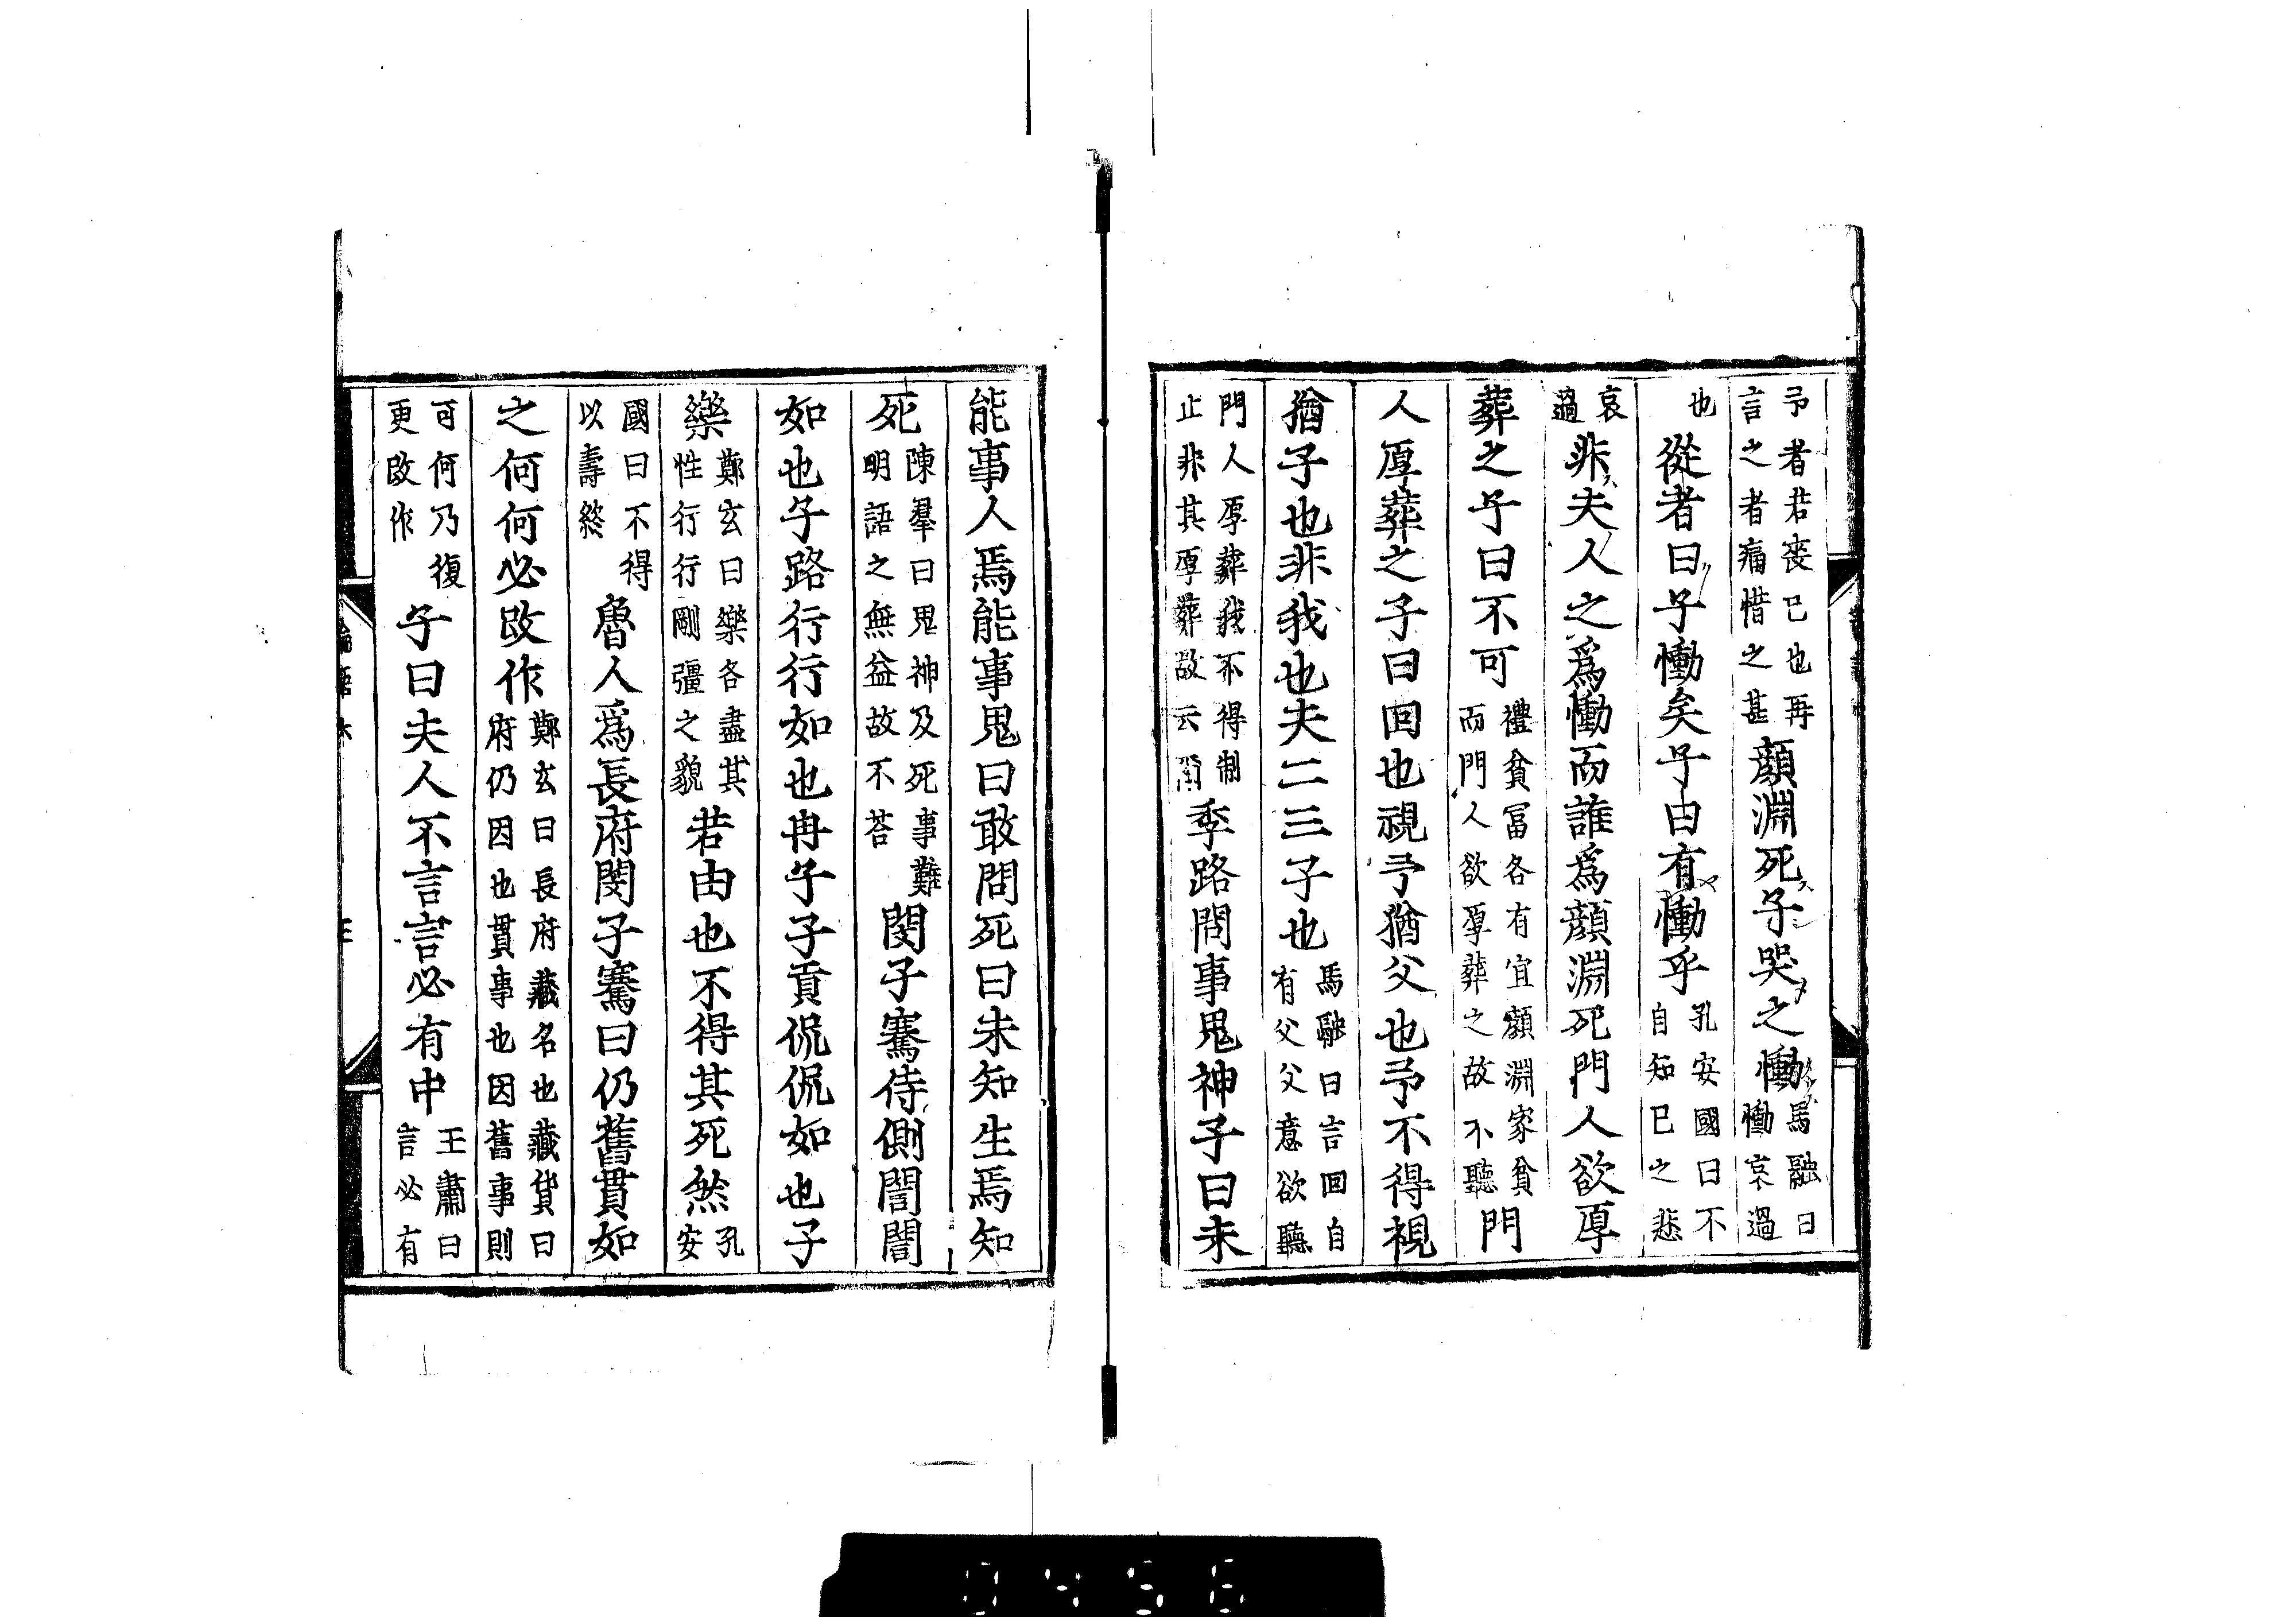 予者若喪己也再
言之者痛惜之甚
顏淵死子哭之慟
馬融曰
慟哀過
也
從者曰子慟矣子曰有慟乎
孔安國曰不
自知己之悲
哀
過
非夫人之爲慟而誰爲顏淵死門人欲厚
葬之子曰不可
禮貧冨各有宜顏淵家貧
而門人欲厚葬之故不聽
門
人厚葬之子曰回也視予猶父也予不得視
猶子也非我也夫二三子也
馬融曰言回自
有父父意欲聽
門人厚葬我不得制
止非其厚葬故云尒
季路問事鬼神子曰未
能事人焉能事鬼曰敢問死曰未知生焉知
死
陳羣曰鬼神及死事難
明語之無益故不荅
閔子騫侍側誾誾
如也子路行行如也冉子子貢侃侃如也子
樂
鄭玄曰樂各盡其
性行行剛彊之貌
若由也不得其死然
孔
安
國曰不得
以壽終
魯人爲長府閔子騫曰仍舊貫如
之何何必改作
鄭玄曰長府藏名也藏貨曰
府仍因也貫事也因舊事則
可何乃復
更改作
子曰夫人不言言必有中
王肅曰
言必有
0456